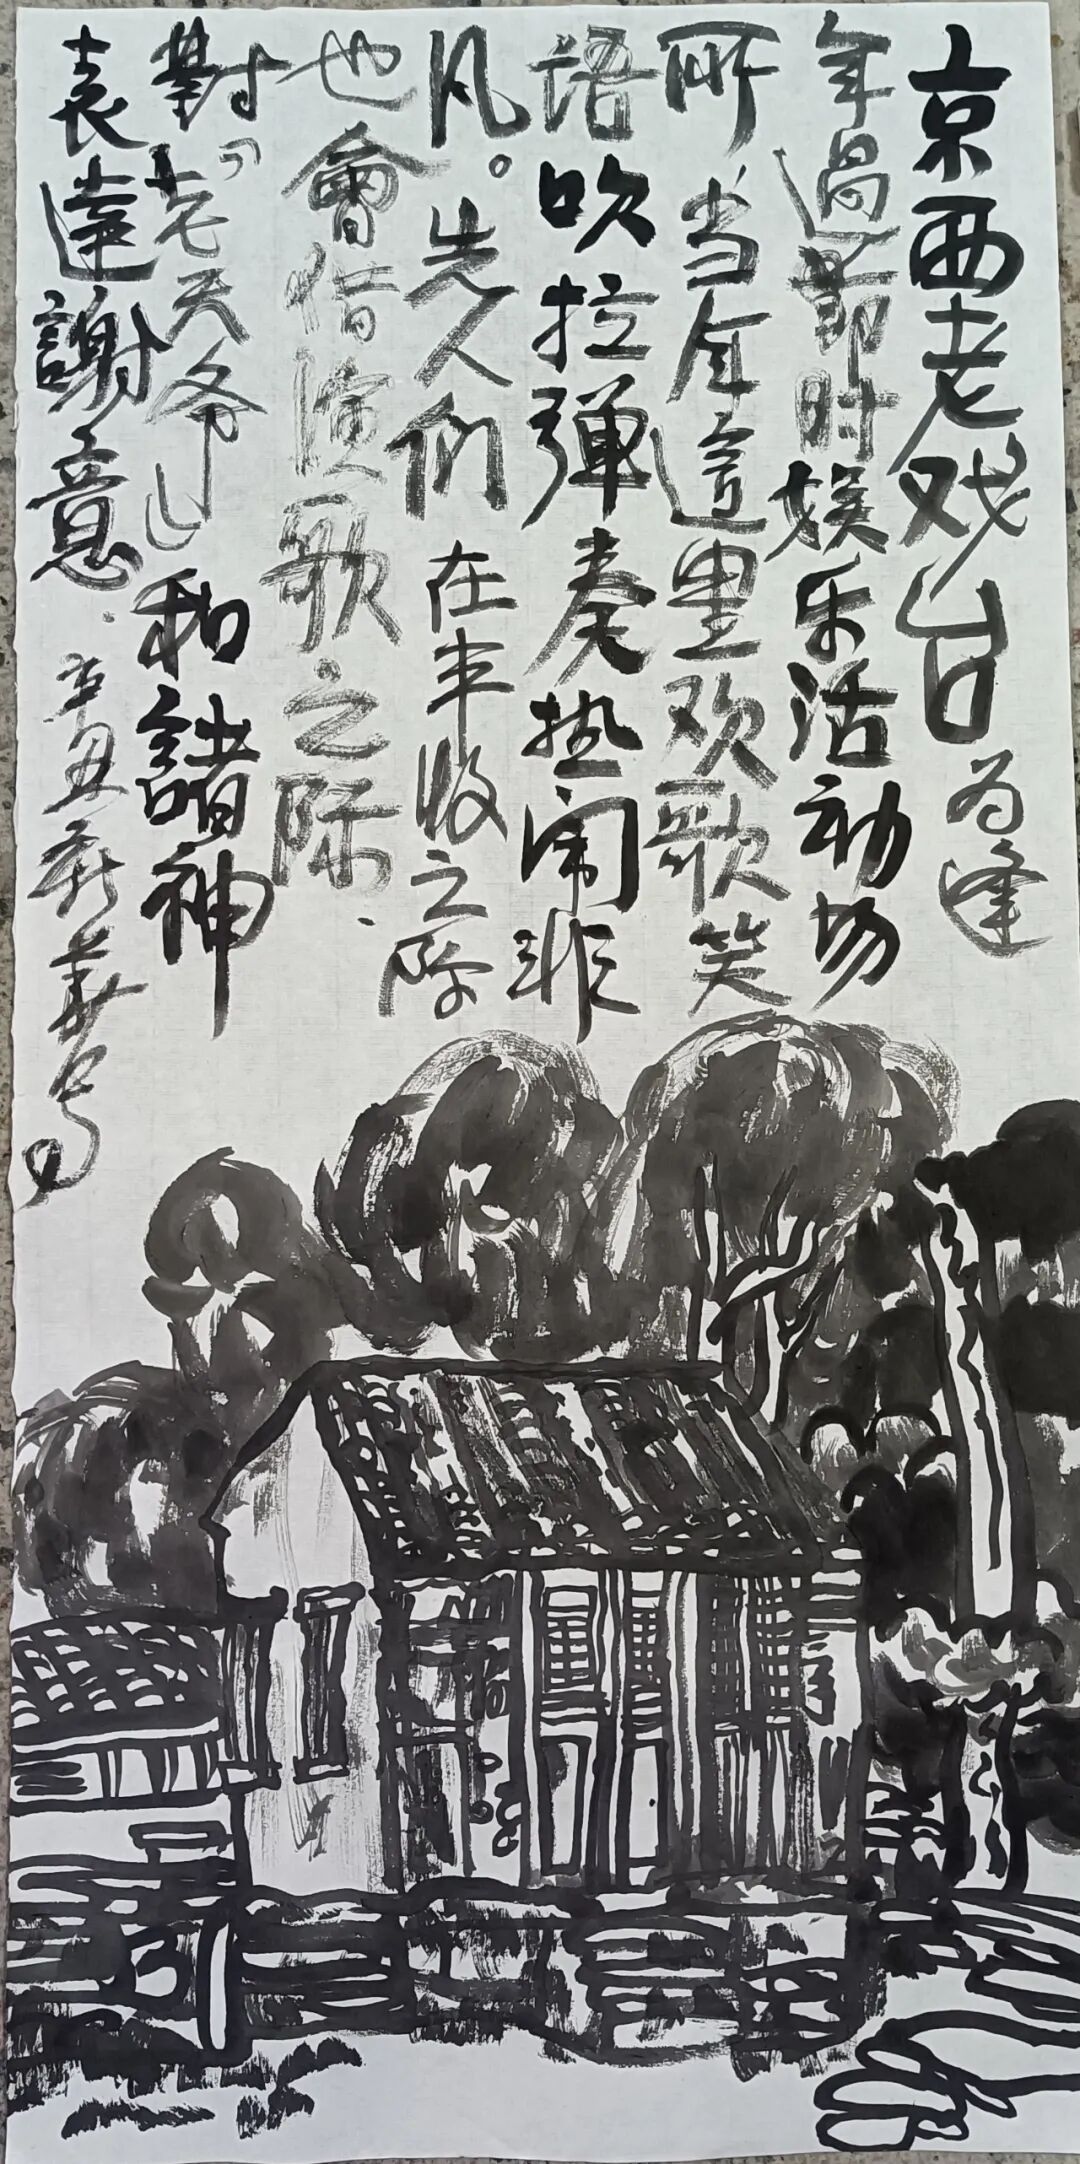 京西老戏台为逢
年過節时娱乐活动场
所当年這里欢歌笑
语吹拉弹奏热闹非
凡。先人们在丰收之际
也會借演歌之际、
對“老天爷”和諸神
表達謝意.辛丑